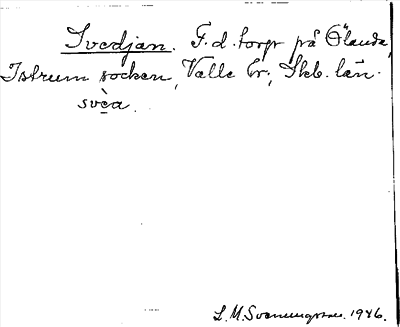 Svedjan. F.d. torp på Ölanda,
Istrum socken, Valle hr; Skb. län.
svèa.
L. M. Svenungsson. 1946.